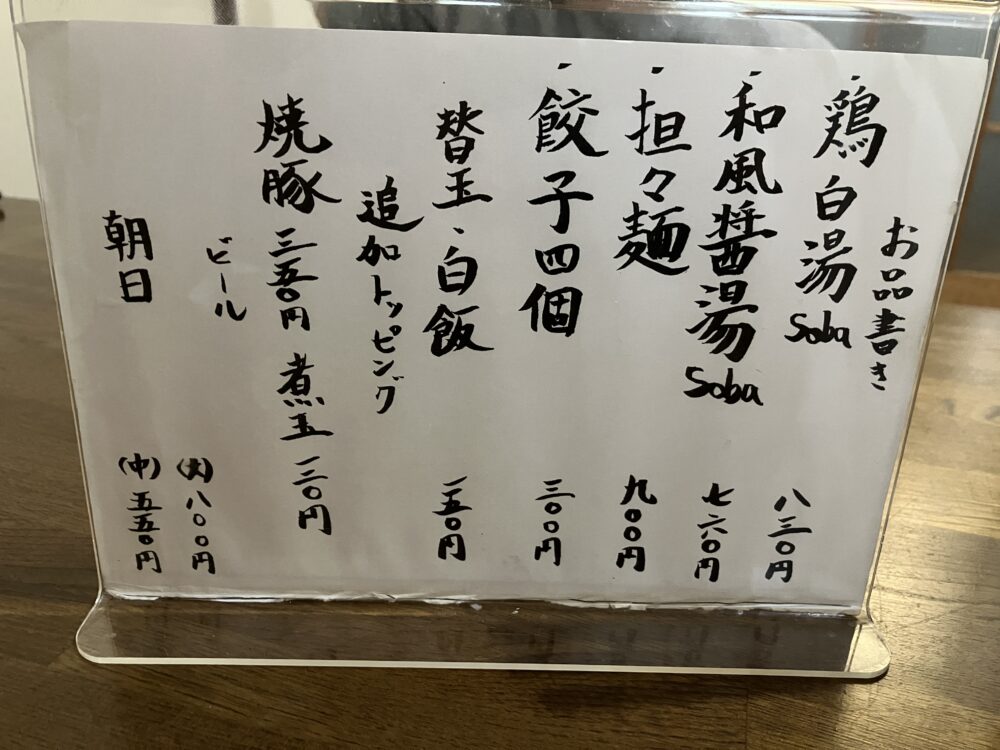 お品書き
・鶏白湯Soba 八三〇円
・和風醤湯Soba 七六〇円
・担々麺 九〇〇円
・餃子四個 三〇〇円
替玉・白飯 一五〇円
追加トッピング
焼豚 三五〇円 煮玉 一三〇円
ビール (大)八〇〇円
朝日 (中)五五〇円